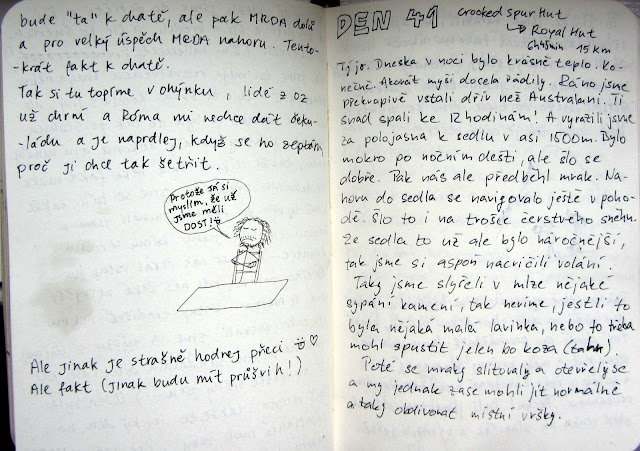 bude "ta" k chatě, ale pak MRDA dolů
a pro velký úspěch MRDA nahoru. Tento-
-krát fakt k chatě.
Tak si tu topíme v ohýnku, lidé z OZ
už chrní a Róma mi nechce dát čeku-
-ládu a je naprdlej, když se ho zeptám,
proč ji chce tak šetřit.
Protože já si
myslím, že už
jsme měli
DOST!
Ale jinak je strašně hodnej přeci ♡
Ale fakt (jinak budu mít průšvih!)
DEN 41
Crooked Spur Hut
↳ Royal Hut
6h45min 15 km
Tý jo. Dneska v noci bylo krásně teplo. Ko-
nečně. Akorát myši docela řádily. Ráno jsme
překvapivě vstali dřív než Australani. Ti
snad spali ke 12 hodinám! A vyrazili jsme
za polojasna k sedlu v asi 1500m. Bylo
mokro po nočním dešti, ale šlo se
dobře. Pak nás ale předběhl mrak. Na-
horu do sedla se navigovalo ještě v poho-
dě. Šlo to i na trošce čerstvého sněhu.
Ze sedla to už ale bylo náročnější,
tak jsme si aspoň nacvičili volání.
Taky jsme slyšeli v mlze nějaké
sypání kamení, tak nevíme, jestli to
byla nějaká malá lavinka, nebo to třeba
mohl spustit jelen bo koza (tahr).
Poté se mraky slitovaly a otevřely se
a my jednak zase mohli jít normálně
a taky obdivovat místní vršky.